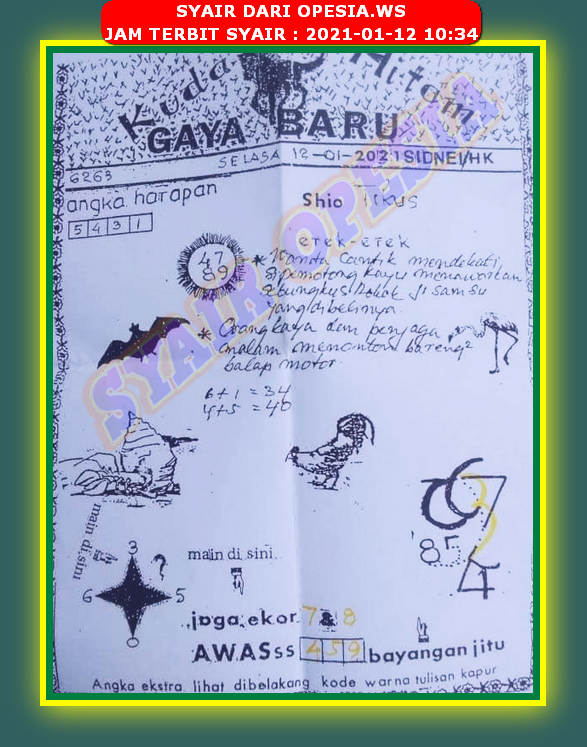 SYAIR DARI OPESIA.WS
JAM TERBIT SYAIR : 2021-01-12 10:34
Kuda Hitam
GAYA BARU
SELASA 12-01-2021 SIDNEI/HK
6263
angka harapan
5 4 3 1
Shio TIKUS
47
89
ETEK-ETEK
* Wanita Cantik mendekati
Si pemotong kayu menawarkan
sebungkus Rokok Ji Sam Su
yang dibelinya.
* Orang kaya dan penjaga
malam menonton bareng2
balap motor.
6+1 = 34
4+5 = 40
SYAIR OPESIA
main di sini
3
?
6 5
0
main di sini
7
3
'85
4
joga ekor 7 & 8
AWASss 4 5 9 bayangan jitu
Angka ekstra lihat dibelakang kode warna tulisan kapur